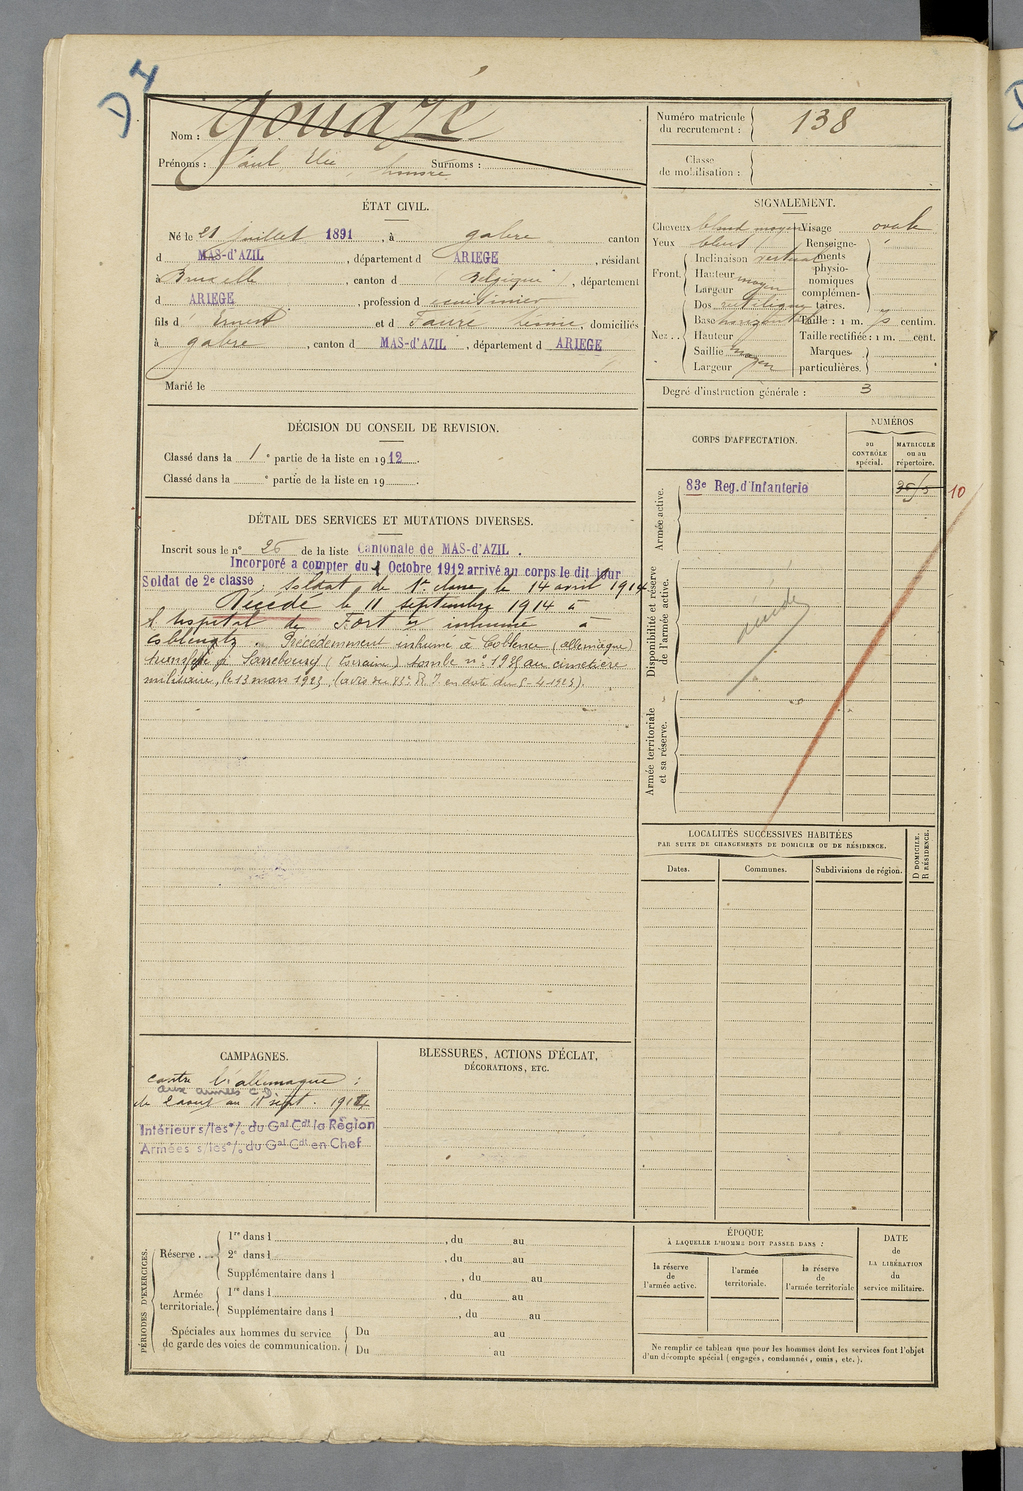 D 4
Nom : Gouazé
Prénoms : Paul Elie Surnoms :
honoré
Numéro matricule
du recrutement : 138
Classe
de mobilisation :
ÉTAT CIVIL.
Né le 21 juillet 1891, à gabre canton
d MAS-d'AZIL, département d ARIEGE, résidant
à Bruxelle, canton d (Belgique), département
d ARIEGE, profession d
fils d' Ernest et d Faure, domiciliés
à gabre, canton d MAS-d'AZIL, département d ARIEGE
Marié le
SIGNALEMENT.
Cheveux blond moyen Visage ovale
Yeux bleus Renseigne-
ments
physio-
nomiques
complémen-
taires.
Front. Inclinaison vertical
Hauteur moyen
Largeur
Nez . . Dos rectiligne
Base horizontal Taille : 1 m. 70 centim.
Hauteur Taille rectifiée : 1 m. cent.
Saillie moyen Marques
Largeur particulières.
Degré d'instruction générale : 3
DÉCISION DU CONSEIL DE REVISION.
Classé dans la 1e partie de la liste en 1912.
Classé dans la e partie de la liste en 19
DÉTAIL DES SERVICES ET MUTATIONS DIVERSES.
Inscrit sous le n° 26 de la liste Cantonale de MAS-d'AZIL.
Incorporé a compter du 1 Octobre 1912 arrivé au corps le dit jour
Soldat de 2e classe, soldat de 1re classe le 14 avril 1914
Décédé le 11 septembre 1914 à
l'hospital de Fort inhumé à
Coblentz. Précédemment inhumé à Coblence (allemagne)
transféré à Sarrebourg (Lorraine) tombe n° au cimetière
militaire, le 13 mars 1923 (avis du 83e R.I. en date du 5-4-1923).
CORPS D'AFFECTATION.
NUMÉROS
DU
CONTRÔLE
spécial.
MATRICULE
ou au
répertoire.
Armée active.
83e Reg. d'Infanterie
10
Disponibilité et réserve
de l'armée active.
décédé
Armée territoriale
et sa réserve.
LOCALITÉS SUCCESSIVES HABITÉES
PAR SUITE DE CHANGEMENTS DE DOMICILE OU DE RÉSIDENCE.
Dates.
Communes.
Subdivisions de région.
D DOMICILE.
R RÉSIDENCE.
CAMPAGNES.
contre l'allemagne :
aux armées C D
du 2 aout au 11 sept. 1914
Intérieur s/les °/o du Gal Cdt la Région
Armées s/les °/o du Gal Cdt en Chef
BLESSURES, ACTIONS D'ÉCLAT,
DÉCORATIONS, ETC.
PÉRIODES D'EXERCICES.
Réserve . . . 1re dans l , du au
2e dans l , du au
Supplémentaire dans l , du au
Armée
territoriale. 1re dans l , du au
Supplémentaire dans l , du au
Spéciales aux hommes du service
de garde des voies de communication. Du au
Du au
ÉPOQUE
À LAQUELLE L'HOMME DOIT PASSER DANS :
la réserve
de
l'armée active.
l'armée
territoriale.
la réserve
de
l'armée territoriale
DATE
de
LA LIBÉRATION
du
service militaire.
Ne remplir ce tableau que pour les hommes dont les services font l'objet
d'un décompte spécial (engagés, condamnés, omis, etc.).